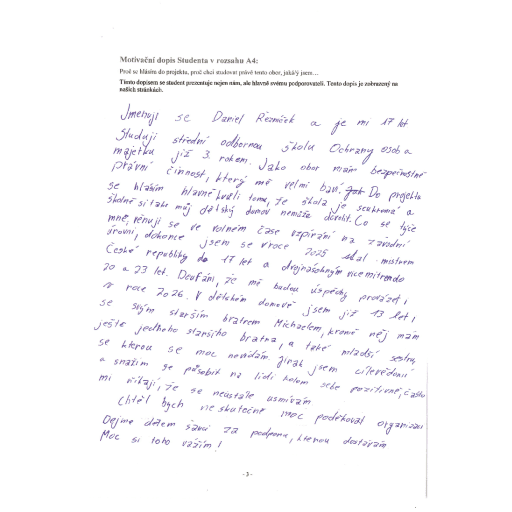 Motivační dopis Studenta v rozsahu A4:
Proč se hlásím do projektu, proč chci studovat právě tento obor, jaká/ý jsem…
Tímto dopisem se student prezentuje nejen nám, ale hlavně svému podporovateli. Tento dopis je zobrazený na
našich stránkách.
Jmenuji se Daniel Řezníček a je mi 17 let
Studuji střední odbornou školu Ochrany osob a
majetku již 3. rokem. Jako obor mám bezpečnostně
právní činnost, který mě velmi baví. Do projektu
se hlásím hlavně kvůli tomu, že škola je soukromá a
školné si také můj dětský domov nemůže dovolit. Co se týče
mně, věnuji se ve volném čase vzpírání na závodní
úrovni, dokonce jsem se v roce 2025 stal mistrem
České republiky do 17 let a dvojnásobným vicemistrem do
20 a 23 let. Doufám, že mě budou úspěchy provázet i
v roce 2026. V dětském domově jsem již 13 let,
se svým starším bratrem Michaelem, kromě něj mám
ještě jednoho staršího bratra, a také mladší sestru,
se kterou se moc nevídám. Jinak jsem cílevědomí
a snažím se působit na lidi kolem sebe pozitivně, často
mi říkají, že se neustále usmívám
Chtěl bych se skutečně moc poděkovat organizaci
Dejme dětem šanci za podporu, kterou dostávám
Moc si toho vážím!
- 3 -